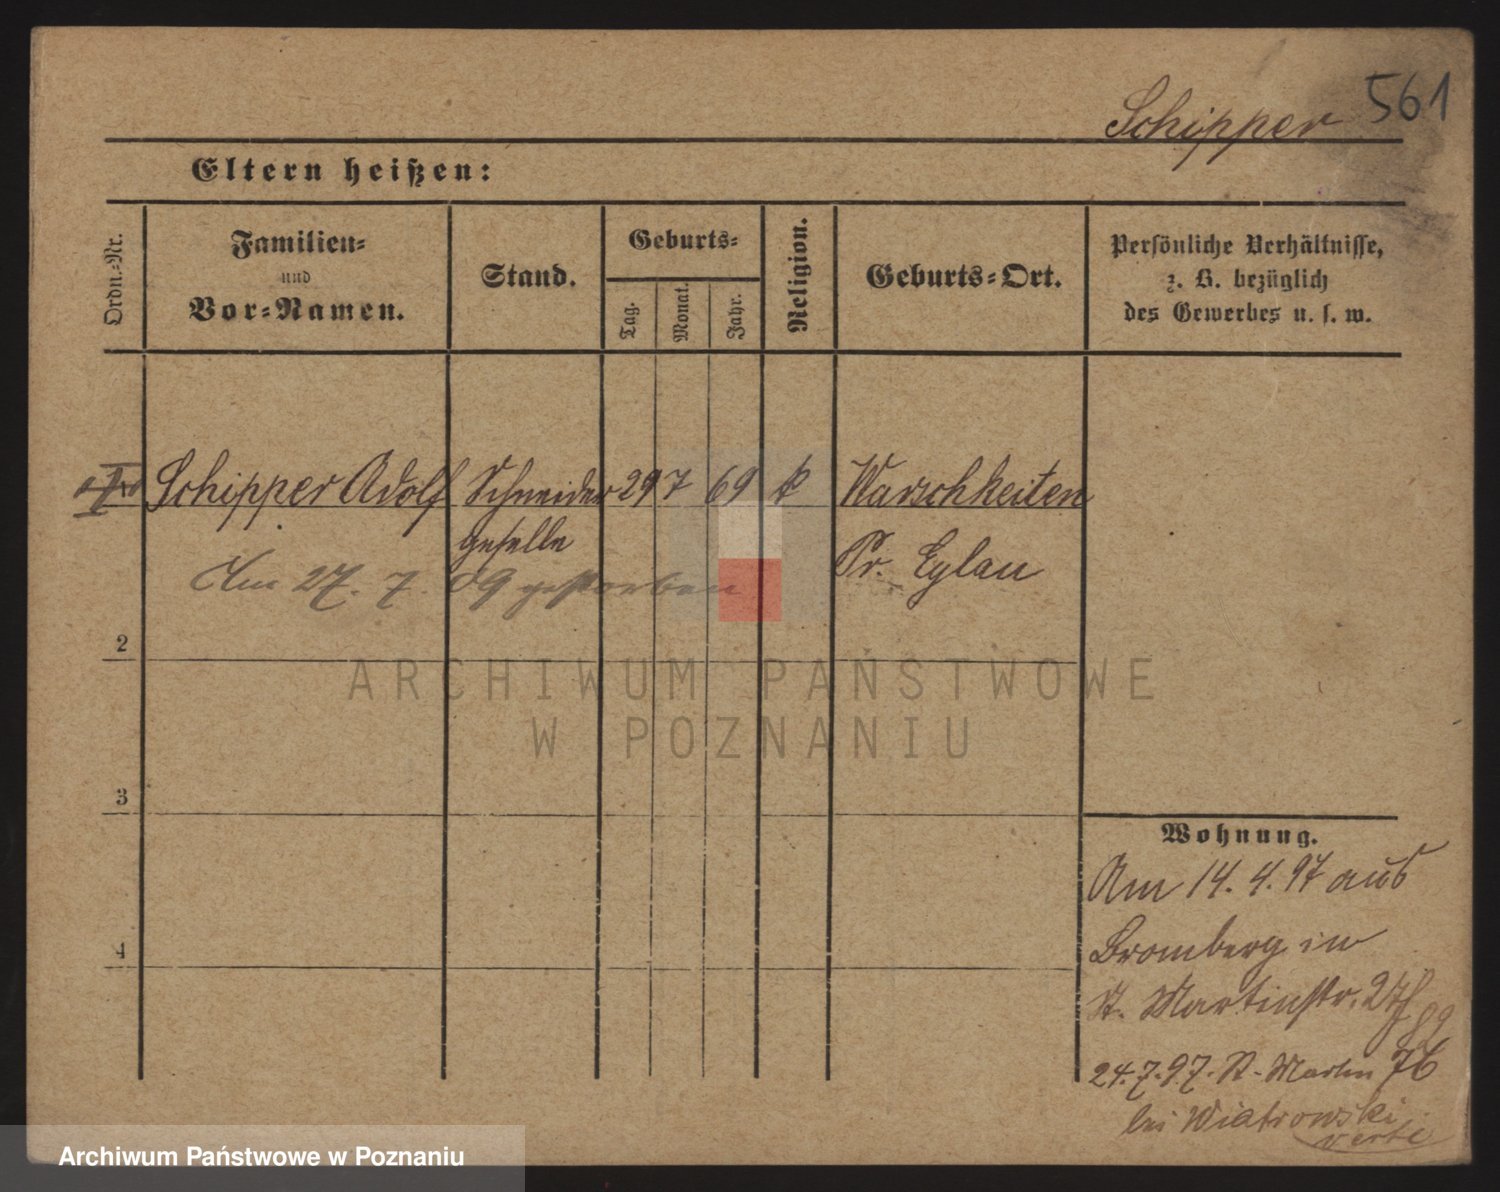 Schipper 561
Eltern heißen:
Ordn.-Nr.
Familien-
und
Vor-Namen.
Stand.
Geburts-
Tag.
Monat.
Jahr.
Religion.
Geburts-Ort.
Persönliche Verhältnisse,
z. B. bezüglich
des Gewerbes u. s. w.
Schipper Adolf Schneider 29 7 69 k Warschkeiten
geselle Pr. Eylau
Am 27. 7. 09 gestorben
2
3
4
ARCHIWUM PAŃSTWOWE
W POZNANIU
Wohnung.
Am 14. 4. 97 aus
Bromberg in
St. Martinstr. 27
24.7.97. St. Martin 76
bei Wiatrowski
verte
Archiwum Państwowe w Poznaniu